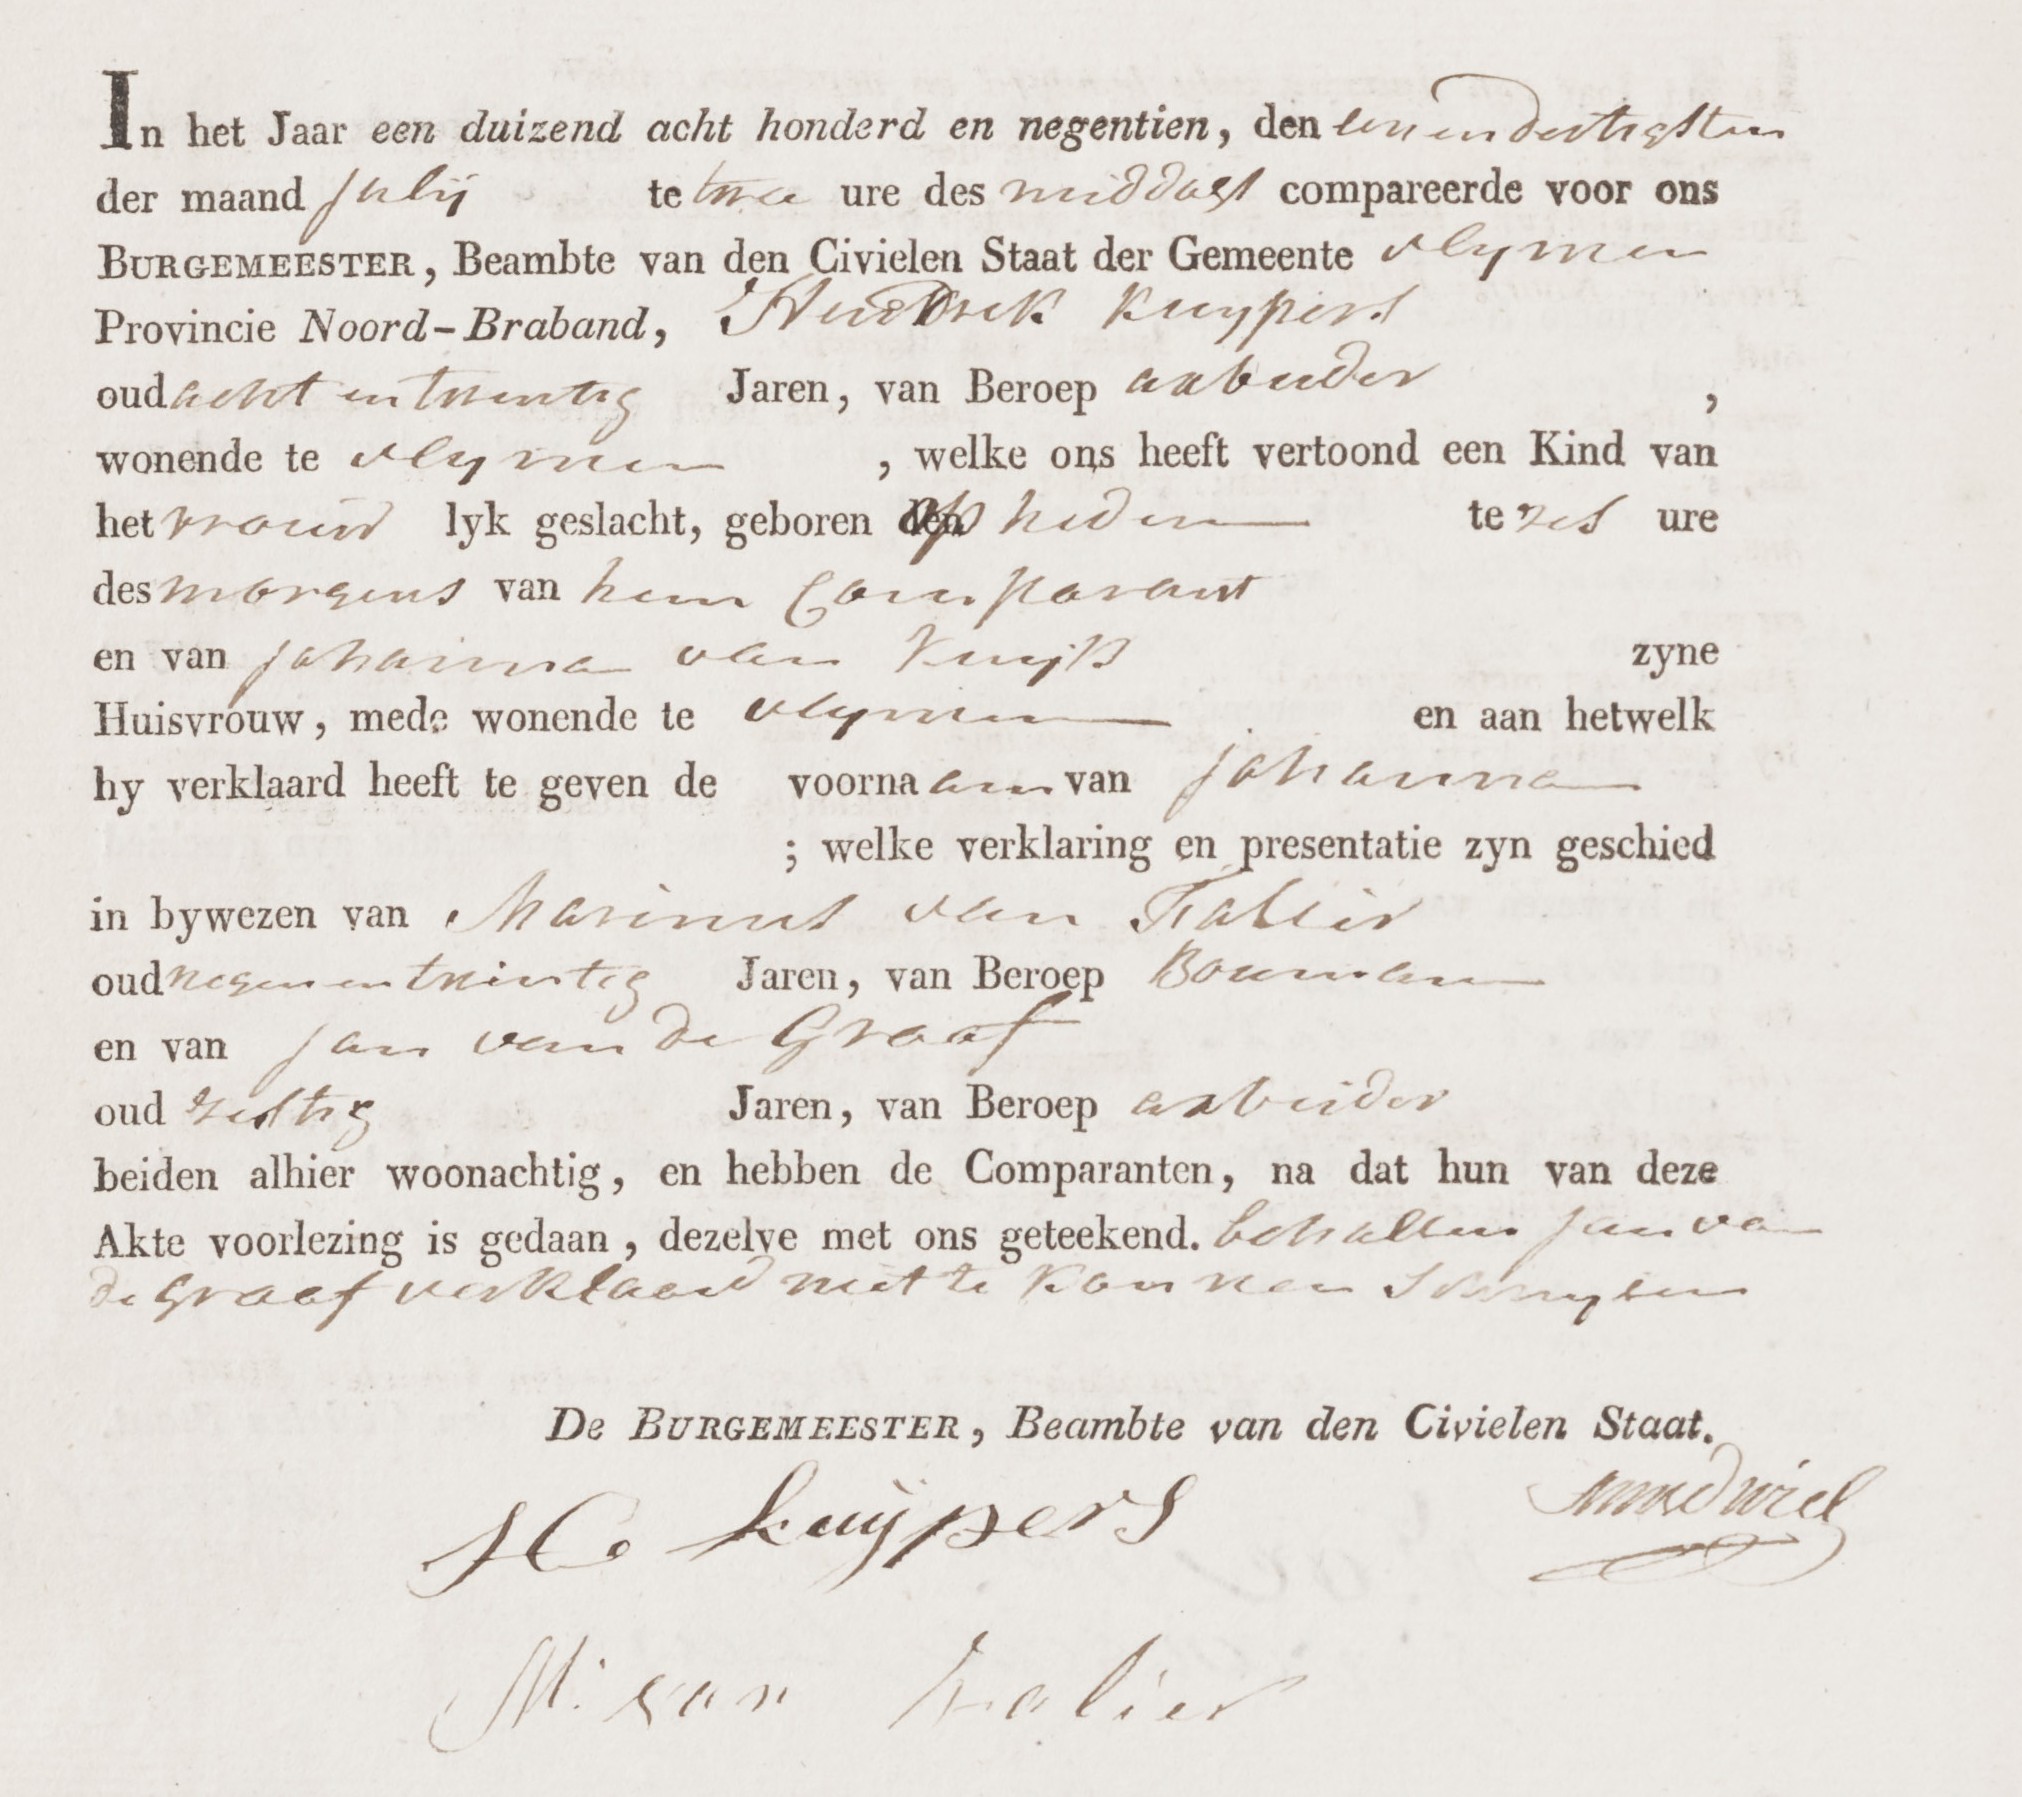 In het Jaar een duizend acht honderd en negentien, den een en dertigsten
der maand julij te twee ure des middags compareerde voor ons
BURGEMEESTER, Beambte van den Civielen Staat der Gemeente vlymen
Provincie Noord-Braband, Hendrik Kuypers
oud acht en twentig Jaren, van Beroep arbeider ,
wonende te vlymen , welke ons heeft vertoond een Kind van
het vrouw lyk geslacht, geboren op heden te zes ure
des morgens van hem Comparant
en van johanna van Kuijk zyne
Huisvrouw, mede wonende te vlymen en aan hetwelk
hy verklaard heeft te geven de voornaam van johanna
; welke verklaring en presentatie zyn geschied
in bywezen van Marinus van Falier
oud negen en twintig Jaren, van Beroep Bouman
en van jan van de Graaf
oud zestig Jaren, van Beroep arbeider
beiden alhier woonachtig, en hebben de Comparanten, na dat hun van deze
Akte voorlezing is gedaan, dezelve met ons geteekend. behallen jan van
de Graaf verklaard niet te konnen schryven
De BURGEMEESTER, Beambte van den Civielen Staat.
H Kuijpers
M. van Falier